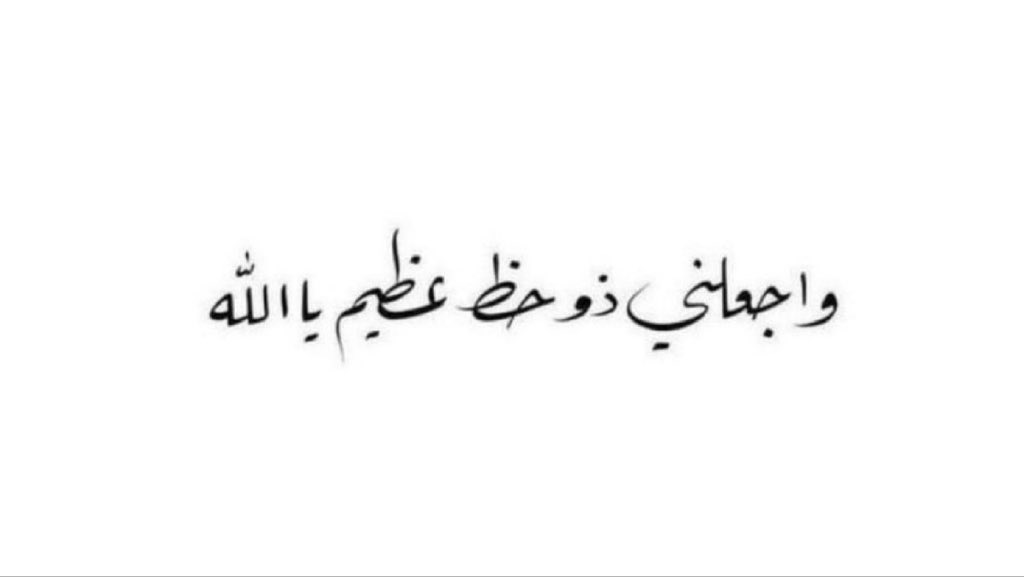 واجعلني ذو حظ عظيم يا الله